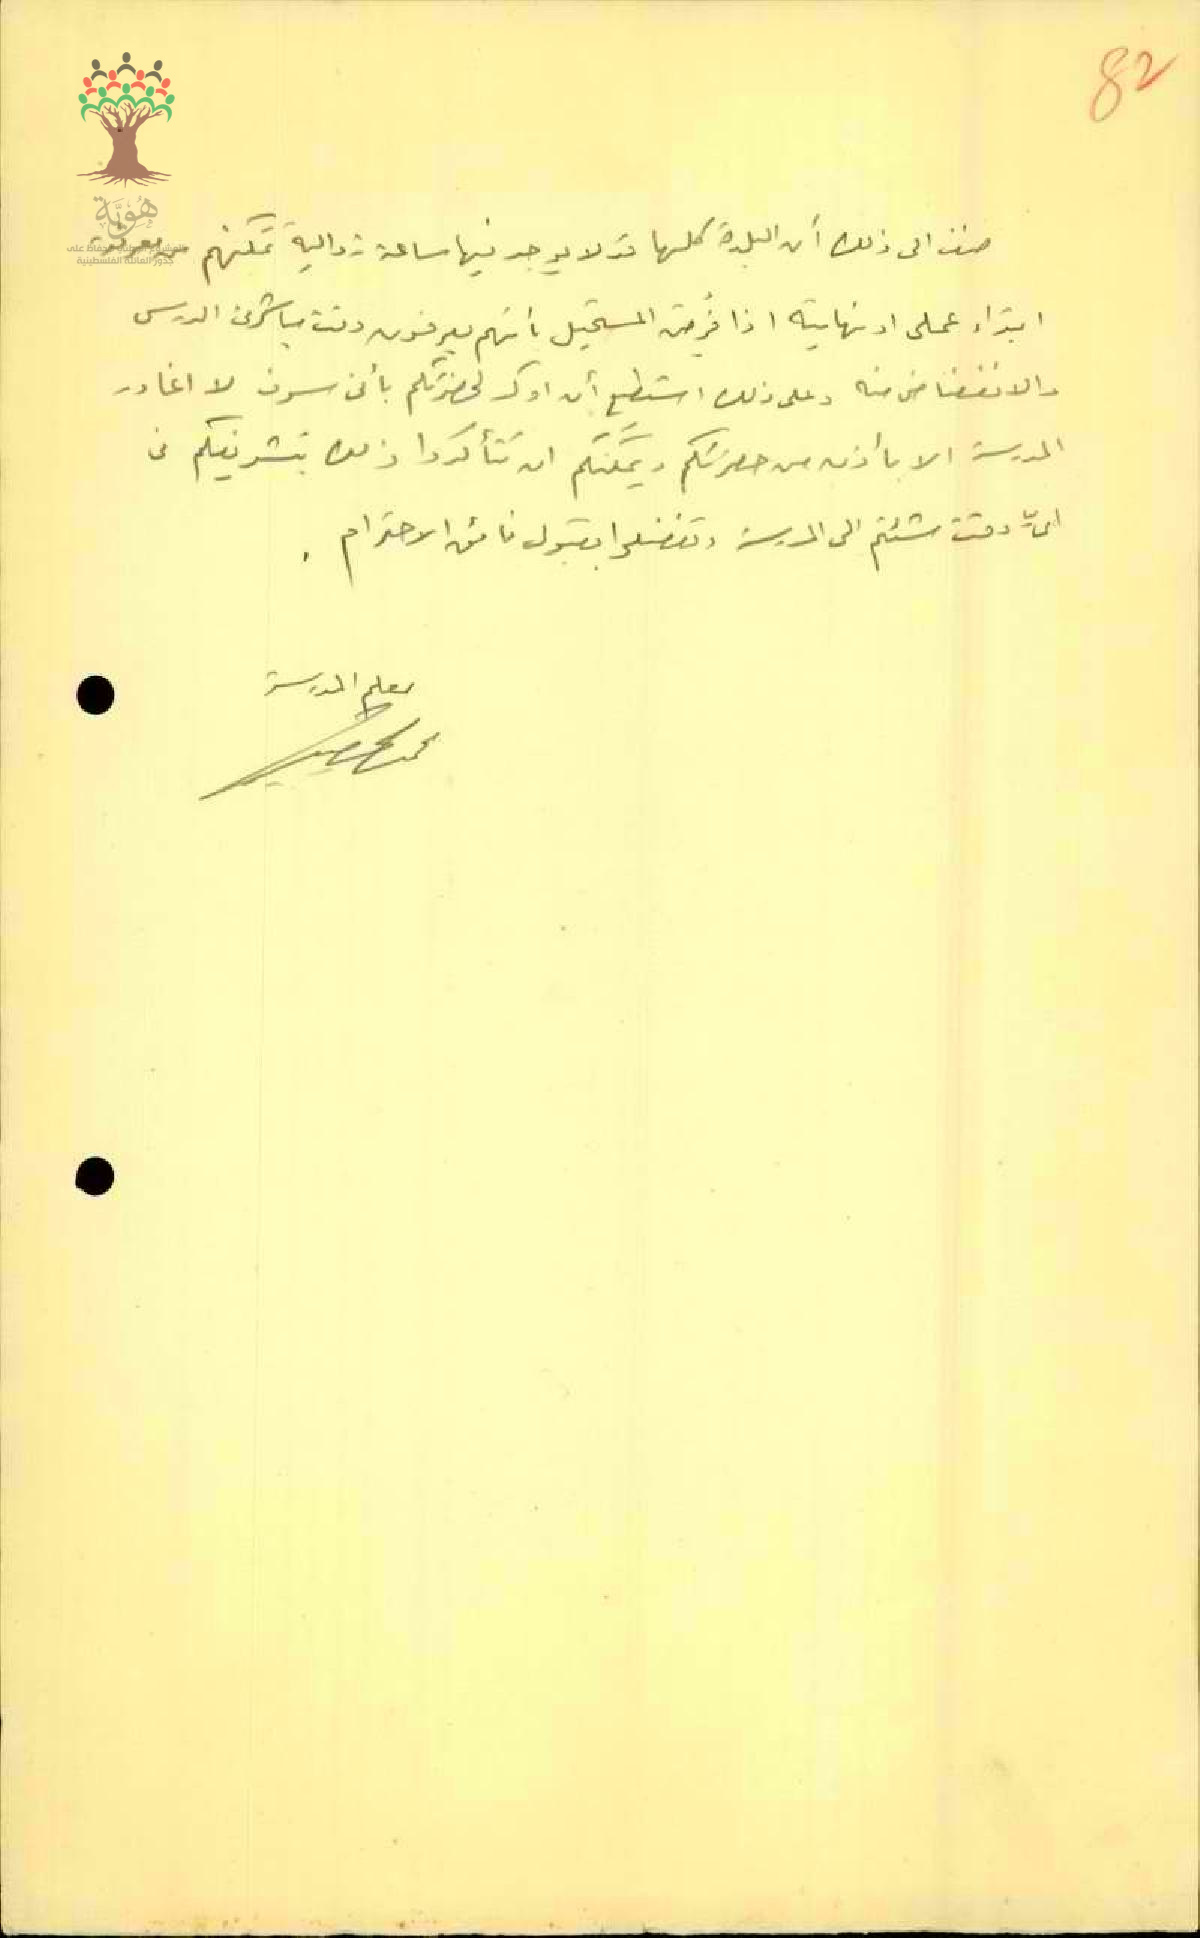 82
هُوِيَّة
جذور العائلة الفلسطينية
ضف الى ذلك أن البلدة كلها قد لا يوجد فيها ساعة زوالية تمكنهم من معرفة
ابتداء عملي او نهايته اذا فُرض المستحيل بأنهم يعرفون وقت مباشرتي الدرس
والانفضاض منه وعلى ذلك استطيع أن اوكد لحضرتكم بأني سوف لا اغادر
المدرسة الا بأذن من حضرتكم ويمكنكم ان تتأكدوا ذلك بتشريفكم في
ايّ وقت شئتم الى المدرسة وتفضلوا بقبول فائق الاحترام .
معلم المدرسة